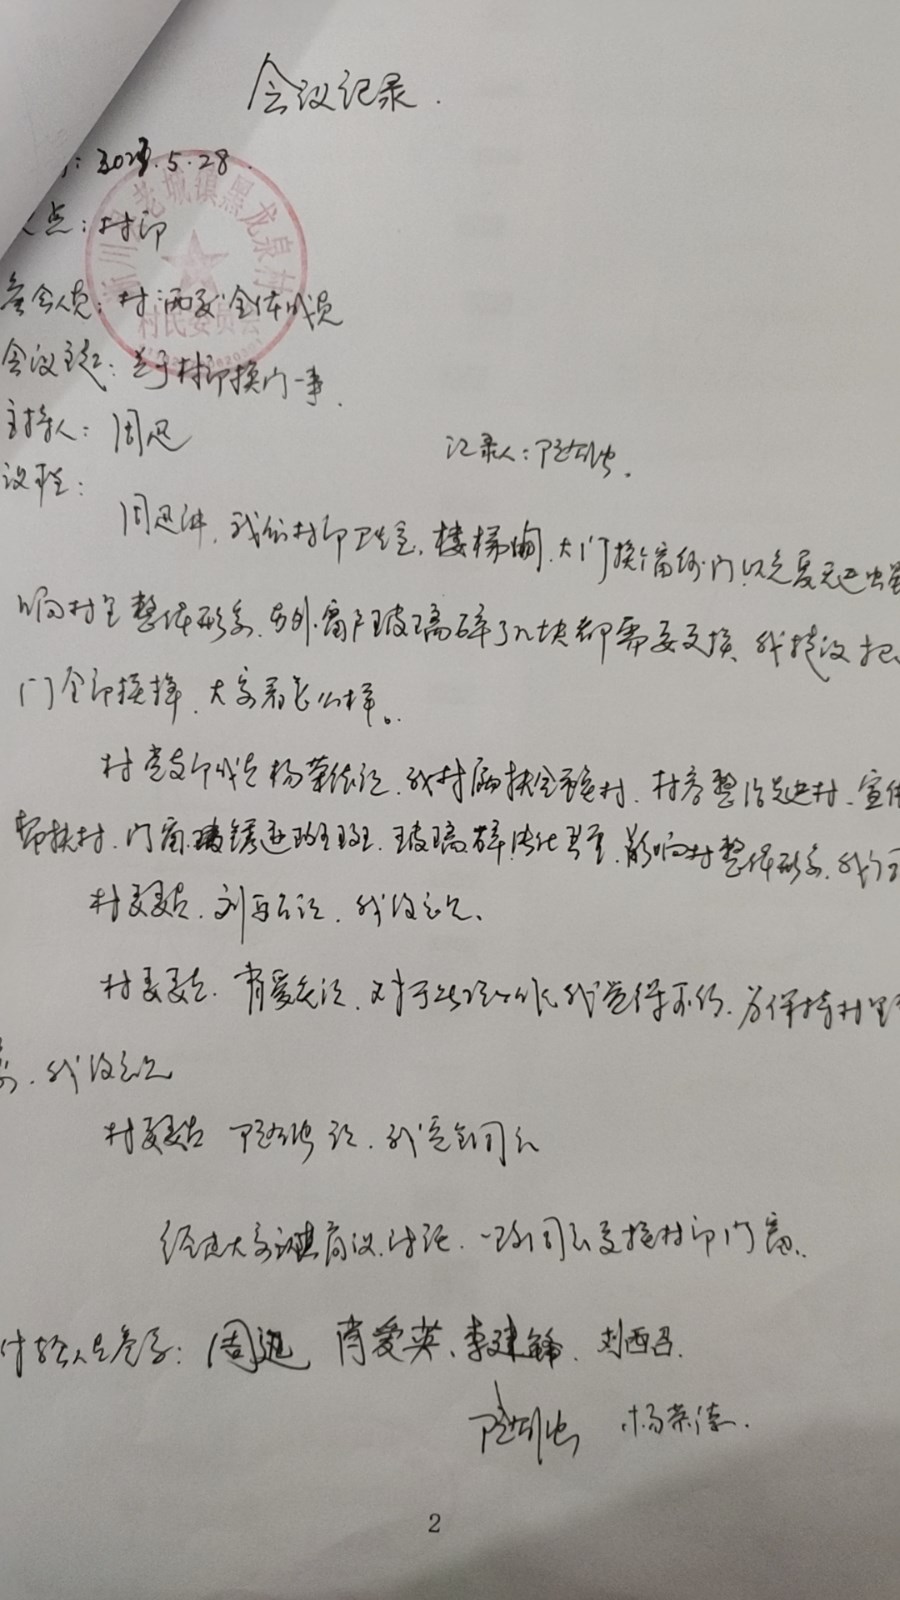 会议记录.
5.28.
点:村部
参会人员:村两委全体成员
会议主题:关于村部换门一事.
主持人:周迅
记录人:
议程:
周迅讲,我们村部卫生室,楼梯间,大门换个窗纱门,以免夏天进虫
响村里整体形象,另外,窗户玻璃碎了几块都需要更换,我提议把
门全部换掉,大家看怎么样。
村党支部成员杨荣德说,我村属扶贫重点村,村容整治先进村,宣传
帮扶村,门窗锈迹斑斑,玻璃碎,老化严重,影响村整体形象,我
村委委员,刘西召说,我没意见、
村委委员,肖爱英说,对于此项工作我觉得可行,为保持村里
象,我没意见
村委委员 说,我完全同意
经过大家商议,讨论,一致同意更换村部门窗.
讨论人员签字:周迅 肖爱英、李建锋. 刘西召.
杨荣德.
北城镇黑龙泉村
村民委员会
2